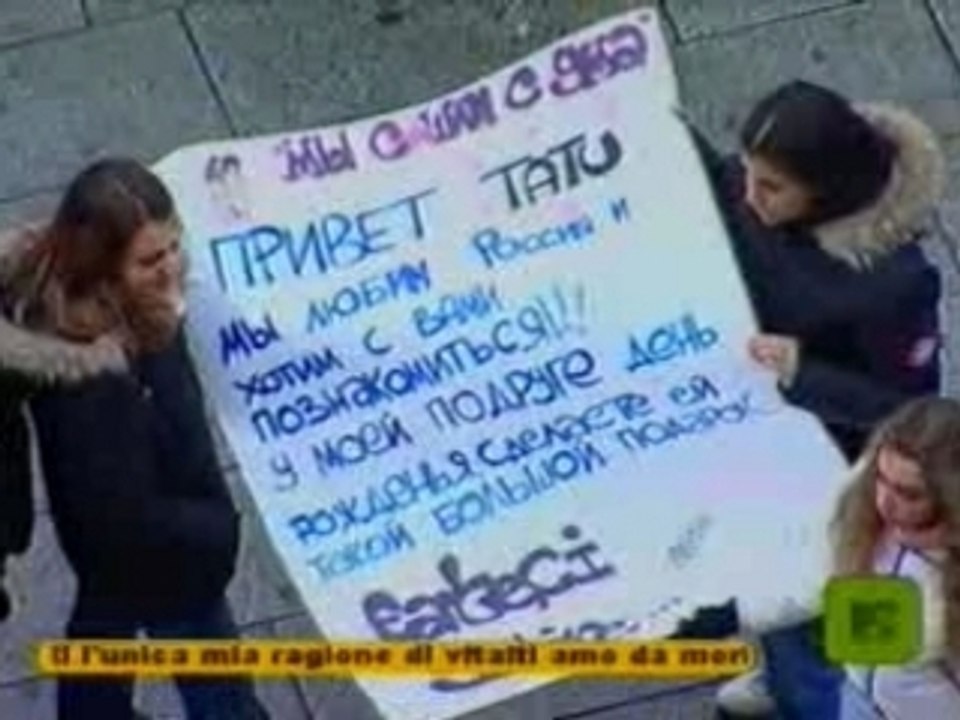 МЫ С УМА
ПРИВЕТ ТАТУ
МЫ ЛЮБИМ РОССИЮ И
ХОТИМ С ВАМИ
ПОЗНАКОМИТЬСЯ!!!
У МОЕЙ ПОДРУГЕ ДЕНЬ
РОЖДЕНЬЯ СДЕЛАЕТЕ ЕЙ
ТАКОЙ БОЛЬШОЙ ПОДАРОК
ti l'unica mia ragione di vitaiti amo da mori